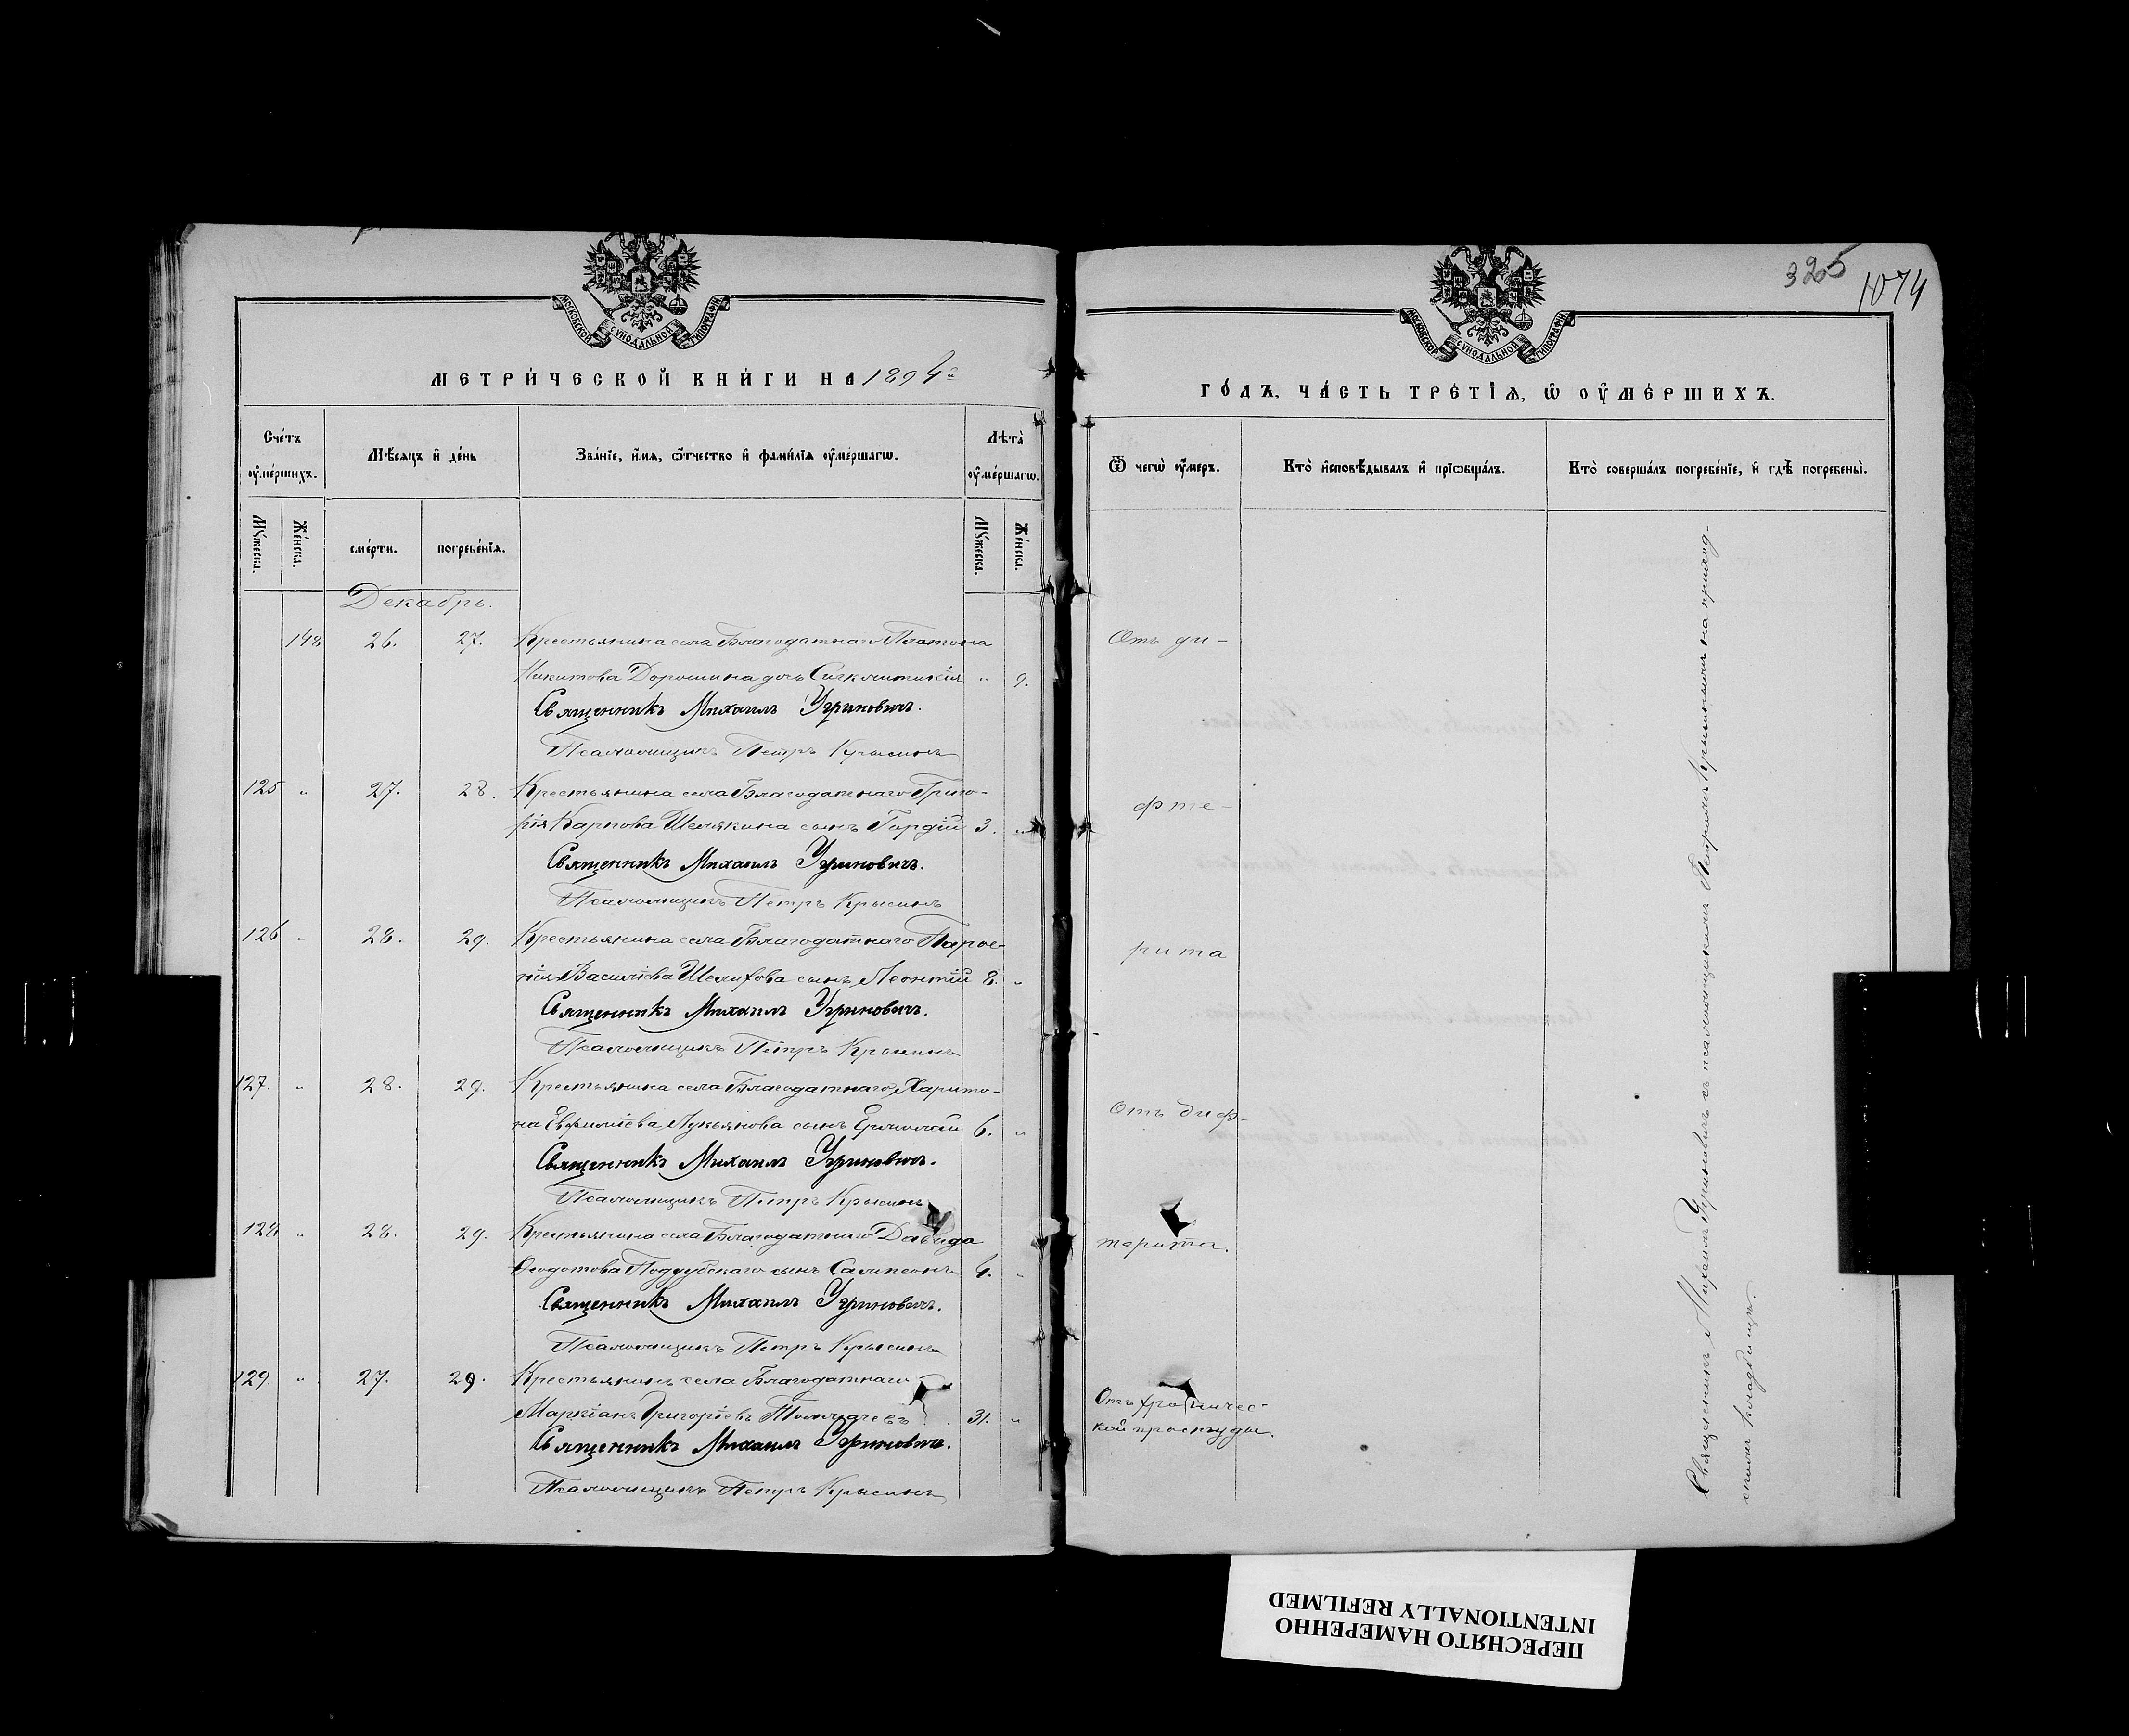 МОСКОВСКОЙ СУНОДАЛЬНОЙ ТИПОГРАФІИ
МЕТРИЧЕСКОЙ КНИГИ НА 1894 г
Счетъ оумершихъ.
Мѣсяцъ и день
Званіе, имя, ѿтчество и фамилія оумершагѡ.
Лѣта оумершагѡ.
Мужеска.
Женска.
смерти.
погребенія.
Мужеска.
Женска.
Декабрь.
148 26. 27. Крестьянина села Благодатнаго Платона
Никитова Дорошина дочь Сигклитикія „ 9.
Священникъ Михаилъ Угриновичъ.
Псаломщикъ Петръ Крысинъ
125 „ 27. 28. Крестьянина села Благодатнаго Григо-
рія Карпова Шелякина сынъ Гордій 3. „
Священникъ Михаилъ Угриновичъ.
Псаломщикъ Петръ Крысинъ
126 „ 28. 29. Крестьянина села Благодатнаго
Василіева Шелихова сынъ Леонтій 8. „
Священникъ Михаилъ Угриновичъ.
Псаломщикъ Петръ Крысинъ
127. „ 28. 29. Крестьянина села Благодатнаго Харито-
на Евфиміева Лукьянова сынъ Ермолай 6. „
Священникъ Михаилъ Угриновичъ.
Псаломщикъ Петръ Крысинъ
128 „ 28. 29. Крестьянина села Благодатнаго Давида
Ѳеодотова Поддубскаго сынъ Сампсонъ 4. „
Священникъ Михаилъ Угриновичъ.
Псаломщикъ Петръ Крысинъ
129. „ 27. 29. Крестьянинъ села Благодатнаго
Маркіанъ Григоріевъ Толмачевъ 31. „
Священникъ Михаилъ Угриновичъ.
Псаломщикъ Петръ Крысинъ
325
1074
МОСКОВСКОЙ СУНОДАЛЬНОЙ ТИПОГРАФІИ
ГОДЪ, ЧАСТЬ ТРЕТІѦ, Ѡ ОУМЕРШИХЪ.
Ѿ чегѡ оумеръ.
Кто исповѣдывалъ и пріѡбщалъ.
Кто совершалъ погребеніе, и гдѣ погребены.
Отъ ди-
фте-
рита
Отъ диф-
терита.
Отъ хроничес-
кой простуды.
Священникъ Михаилъ Угриновичъ съ псаломщикомъ Петромъ Крысинымъ на приход-
скомъ кладбищѣ.
ПЕРЕСНЯТО НАМЕРЕННО
INTENTIONALLY REFILMED